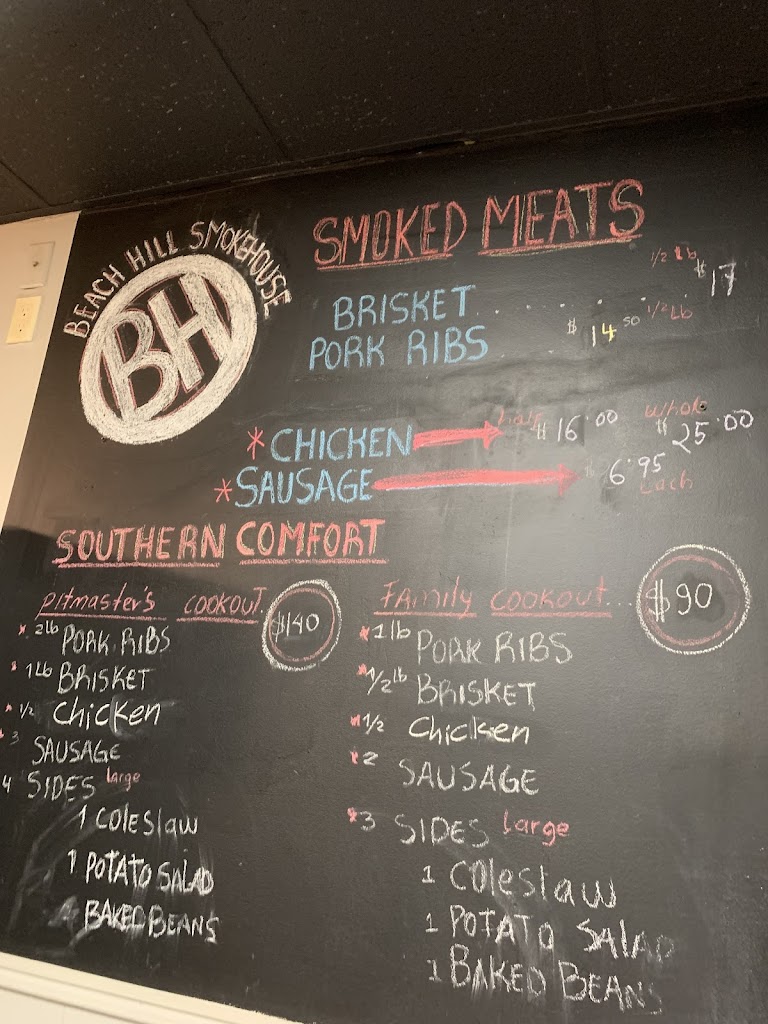 BEACH HILL SMOKEHOUSE
BH
SMOKED MEATS
BRISKET........ 1/2 Lb $17
PORK RIBS .. $14.50 1/2 Lb
* CHICKEN half $16.00 Whole $25.00
* SAUSAGE $6.95 Each
SOUTHERN COMFORT
PITMASTER'S COOKOUT. $140
* 2lb PORK RIBS
* 1Lb BRISKET
* 1/2 Chicken
* 3 SAUSAGE
4 SIDES large
1 Coleslaw
1 POTATO SALAD
BAKED BEANS
FAMily COOKOUT... $90
* 1lb PORK RIBS
* 1/2 lb BRISKET
* 1/2 Chicken
* 2 SAUSAGE
* 3 SIDES Large
1 Coleslaw
1 POTATO SALAD
1 BAKED BEANS